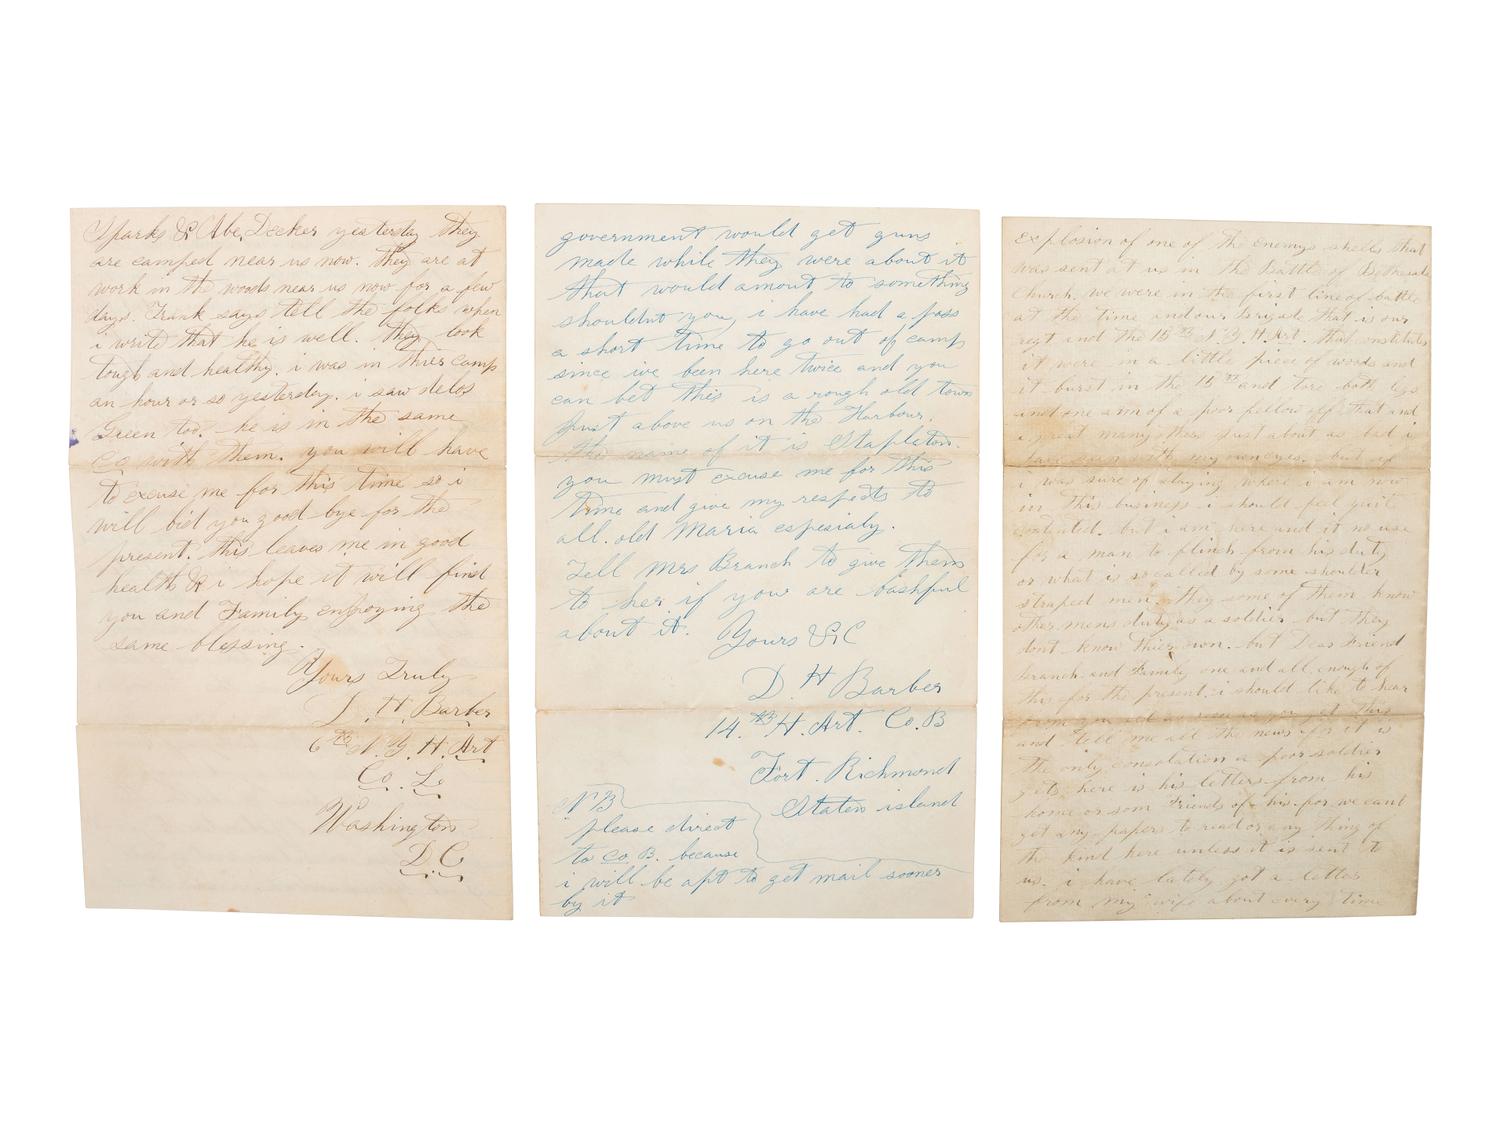 Sparks & Abe, Decker yesterday they
are camped near us now. they are at
work in the woods near us now for a few
days. Frank says tell the folks when
i write that he is well. they look
tough and healthy. i was in thier camp
an hour or so yesterday. i saw delos
Green too. he is in the same
Co with them. you will have
to excuse me for this time so i
will bid you good bye for the
present. this leaves me in good
health & i hope it will find
you and Family enjoying the
same blessing.
Yours Truly
D. H. Barber
6th N. Y. H. Art
Co. L.
Washington
D.C.
government would get guns
made while they were about it
that would amout to something
shouldnt you, i have had a pass
a short time to go out of camp
since ive been here twice and you
can bet this is a rough old town
just above us on the Harbour.
the name of it is Stapleton.
you must excuse me for this
time and give my respects to
all. old Maria espesialy.
Tell Mrs Branch to give them
to her if your are bashful
about it. Yours &C
D. H Barber
14.th H. Art. Co. B
Fort. Richmond
Staten island
N B
please direct
to Co. B. because
i will be apt to get mail sooner
by it
explosion of one of the enemys shells that
was sent at us in the battle of Bethesda
Church. we were in the first line of battle
at the time and our brigade that is our
regt and the 15th N. Y. H. Art. that constitutes
it were in a little piece of woods and
it burst in the 15th and tore both legs
and one arm of a poor fellow off that and
a great many others just about as bad i
have seen with my own eyes. but if
i was sure of staying where i am now
in this business i should feel quit
contented. but i am here and it no use
for a man to flinch from his duty
or what is so called by some shoulder
straped men. they some of them know
other mens duty as a soldier but they
dont know thier own. but Dear Friend
Branch and Family one and all enough of
this for the present. i should like to hear
from you all as soon as you get this
and tell me all the news for it is
the only consolation a poor soldier
gets here is his letters from his
home or som Friends of his. for we cant
get any papers to read or any thing of
the kind here unless it is sent to
us. i have lately got a letter
from my wife about every time